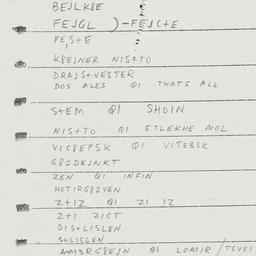 BEJLK8E
FEJGL )-FEJC+E
PE,S+E
K8EJNER NIS++O
DRAJS+VESTER
DOS ALES QI THATS ALL
S+EM QI SHOIN
NIS++O QI ETLEKHE MOL
VIC8EPSK QI VITEBSK
G8JDEJNKT
ZEN QI INFIN
HOTIRG8JVEN
Z+IZ QI ZI IZ
Z+I ZICT
DIS+LISLEN
S+LISLEN
A-M3RG8EJN QI LOMIR/TSVEI